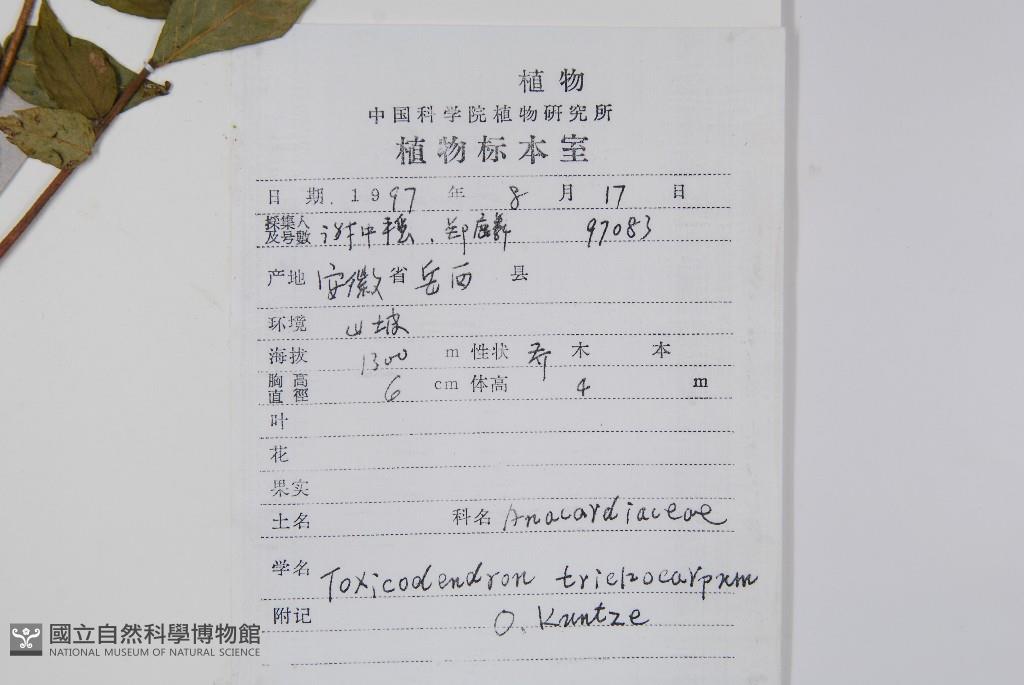 植物
中国科学院植物研究所
植物标本室
日期.1997年8月17日
採集人及号數 谢中稳、郑 97083
产地 安徽省岳西县
环境 山坡
海拔 1300 m 性状 乔木 本
胸高直徑 6 cm 体高 4 m
叶
花
果实
土名 科名 Anacardiaceae
学名 Toxicodendron trichocarpum
附记 O. Kuntze
國立自然科學博物館
NATIONAL MUSEUM OF NATURAL SCIENCE